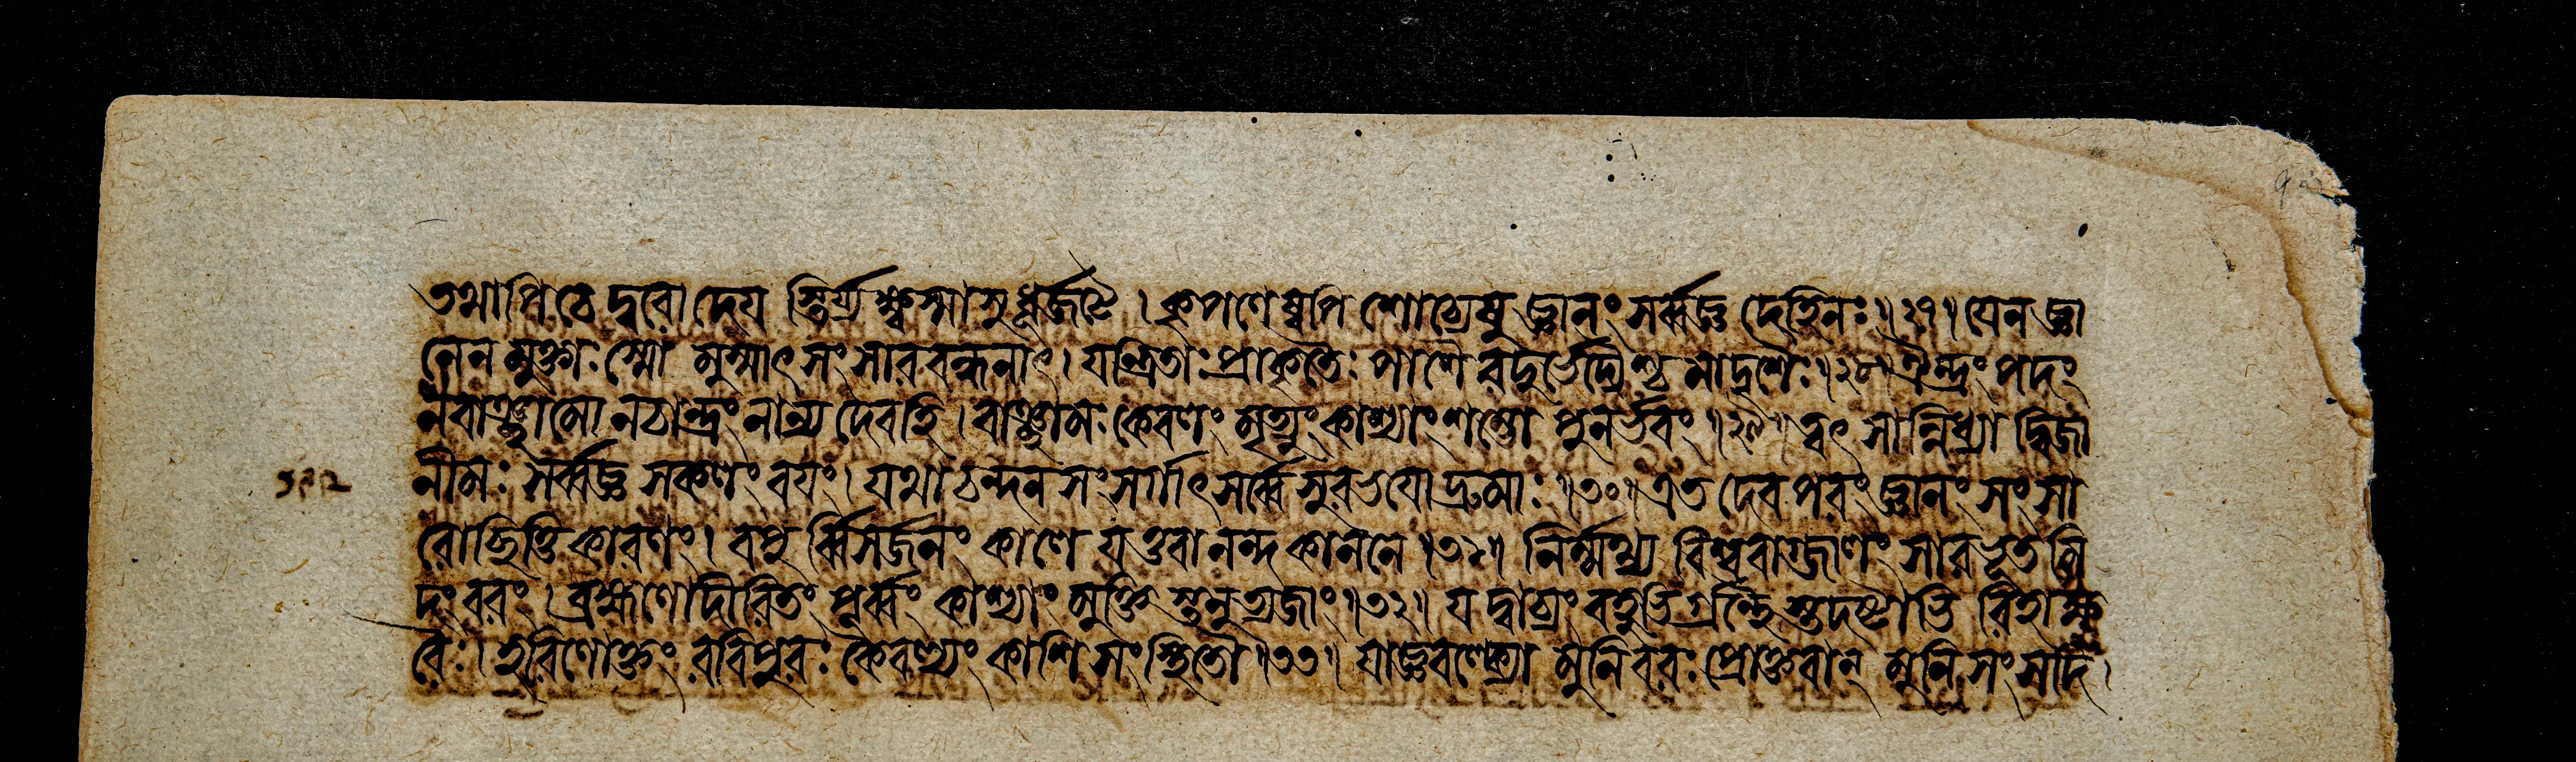 তথাপি চেদ্বরো দেয স্তির্য্যক্ষ্বস্মাসু ধূর্জটে । কৃপণেষ্বপি শোচ্যেষু জ্ঞানং সর্ব্বজ্ঞ দেহিনঃ ॥ ২৭ ॥ যেন জ্ঞা
নেন মুক্তাঃ স্মো মুষ্মাৎ সংসারবন্ধনাৎ । যন্ত্রিতাঃ প্রাকৃতৈঃ পাশৈ রদুর্ভেদ্যৈশ্চ মাদৃশৈঃ ॥ ২৮ ॥ ঐন্দ্রং পদং
ন বাঞ্ছামো ন চান্দ্রং নান্য দেবহি । বাঞ্ছামঃ কেবলং মৃত্যুং কাশ্যাং শম্ভো পুনর্ভবং ॥ ২৯ ॥ ত্বৎ সান্নিধ্যা দ্বিজা
নীমঃ সর্ব্বজ্ঞ সকলং বযং । যথা চন্দন সংসর্গাৎ সর্ব্বে সুরভযো দ্রুমাঃ ॥ ৩০ ॥ এত দেব পরং জ্ঞানং সংসা
রোচ্ছিত্তি কারণং । বপু র্ব্বিসর্জনং কালে যত্তবানন্দ কাননে ॥ ৩১ ॥ নির্ম্মথ্য বিষ্বগ্বাগ্জালং সারভূত মি
দং বরং । ব্রহ্মণোদীরিতং পূর্ব্বং কাশ্যাং মুক্তি স্তনুত্যজাং ॥ ৩২ ॥ যদ্বাচ্যং বহুভির্গ্রন্থৈ স্তদষ্টাভি রিহাক্ষ
রৈঃ । হরিণোক্তং রবিপুরঃ কৈবল্যং কাশি সংস্থিতৌ ॥ ৩৩ ॥ যাজ্ঞবল্ক্যো মুনিবরঃ প্রোক্তবান্ মুনি সংসদি ।